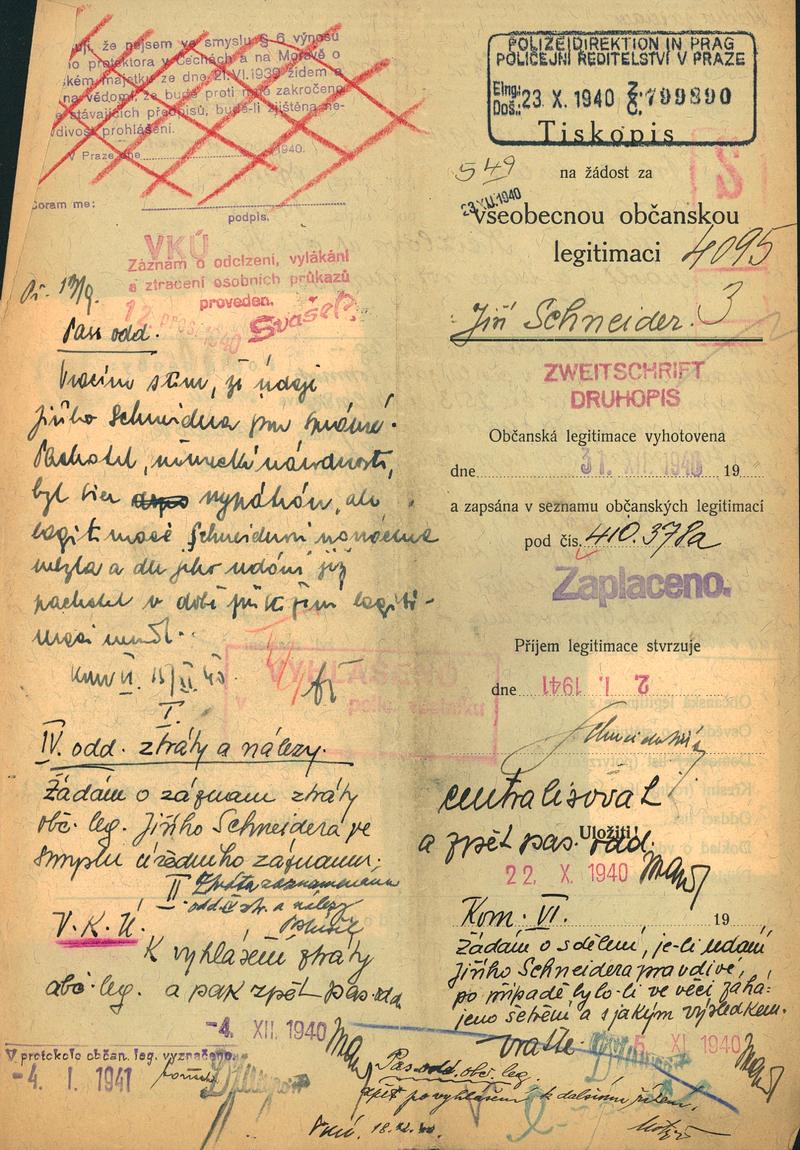 ují, že nejsem ve smyslu § 6 výnosu
ho protektora v Čechách a na Moravě o
ském majetku ze dne 21.VI.1939 židem a
na vědomí, že bude proti mně zakročeno
e stávajících předpisů, bude-li zjištěna ne-
divost prohlášení.
V Praze dne 1940.
Coram me:
podpis.
VKÚ
Záznam o odcizení, vylákání
a ztracení osobních průkazů
proveden.
12 pros. 1940
Švašek
Pass odd.
Vracím s tím, že údaje
Jiřího Schneidera jsou správné.
Pachatel, německé národnosti,
byl sice vypátrán, ale
legitimace Schneiderovi
a dle jeho udání již
pachatel v době legiti-
maci neměl.
I.
IV. odd. ztráty a nálezy.
Žádám o záznam ztráty
obč. leg. Jiřího Schneidera ve
smyslu úředního záznamu.
II
Ztráta zaznamenána
odd. IV ztr. a nálezy
V. K. Ú.
K vyhlášení ztráty
obč. leg. a pak zpět pas. odd.
-4. XII. 1940
V protokole občan. leg. vyznačeno.
-4. I. 1941
POLIZEIDIREKTION IN PRAG
POLICEJNÍ ŘEDITELSTVÍ V PRAZE
Elng.:
Doš.: 23. X. 1940 Z. Č. 799890
Tiskopis
549
na žádost za
23.XII.1940
všeobecnou občanskou
legitimaci 4095
Jiří Schneider. 3
ZWEITSCHRIFT
DRUHOPIS
Občanská legitimace vyhotovena
dne 31. XII. 1940 19
a zapsána v seznamu občanských legitimací
pod čís. 410.378a
Zaplaceno.
Příjem legitimace stvrzuje
dne 2. I. 1941
VYHLÁŠENO
v polic. věstníku
Schneider Jiří
centralisovat
a zpět pas. odd.
Uložiti!
22. X. 1940
Kom. VI.
19
Žádám o sdělení, je-li udání
Jiřího Schneidera pravdivé,
po případě bylo-li ve věci zahá-
jeno šetření a s jakým výsledkem.
Vraťte.
5. XI. 1940
Pas. odd. obč. leg.
zpět po vyhlášení k dalšímu řízení.